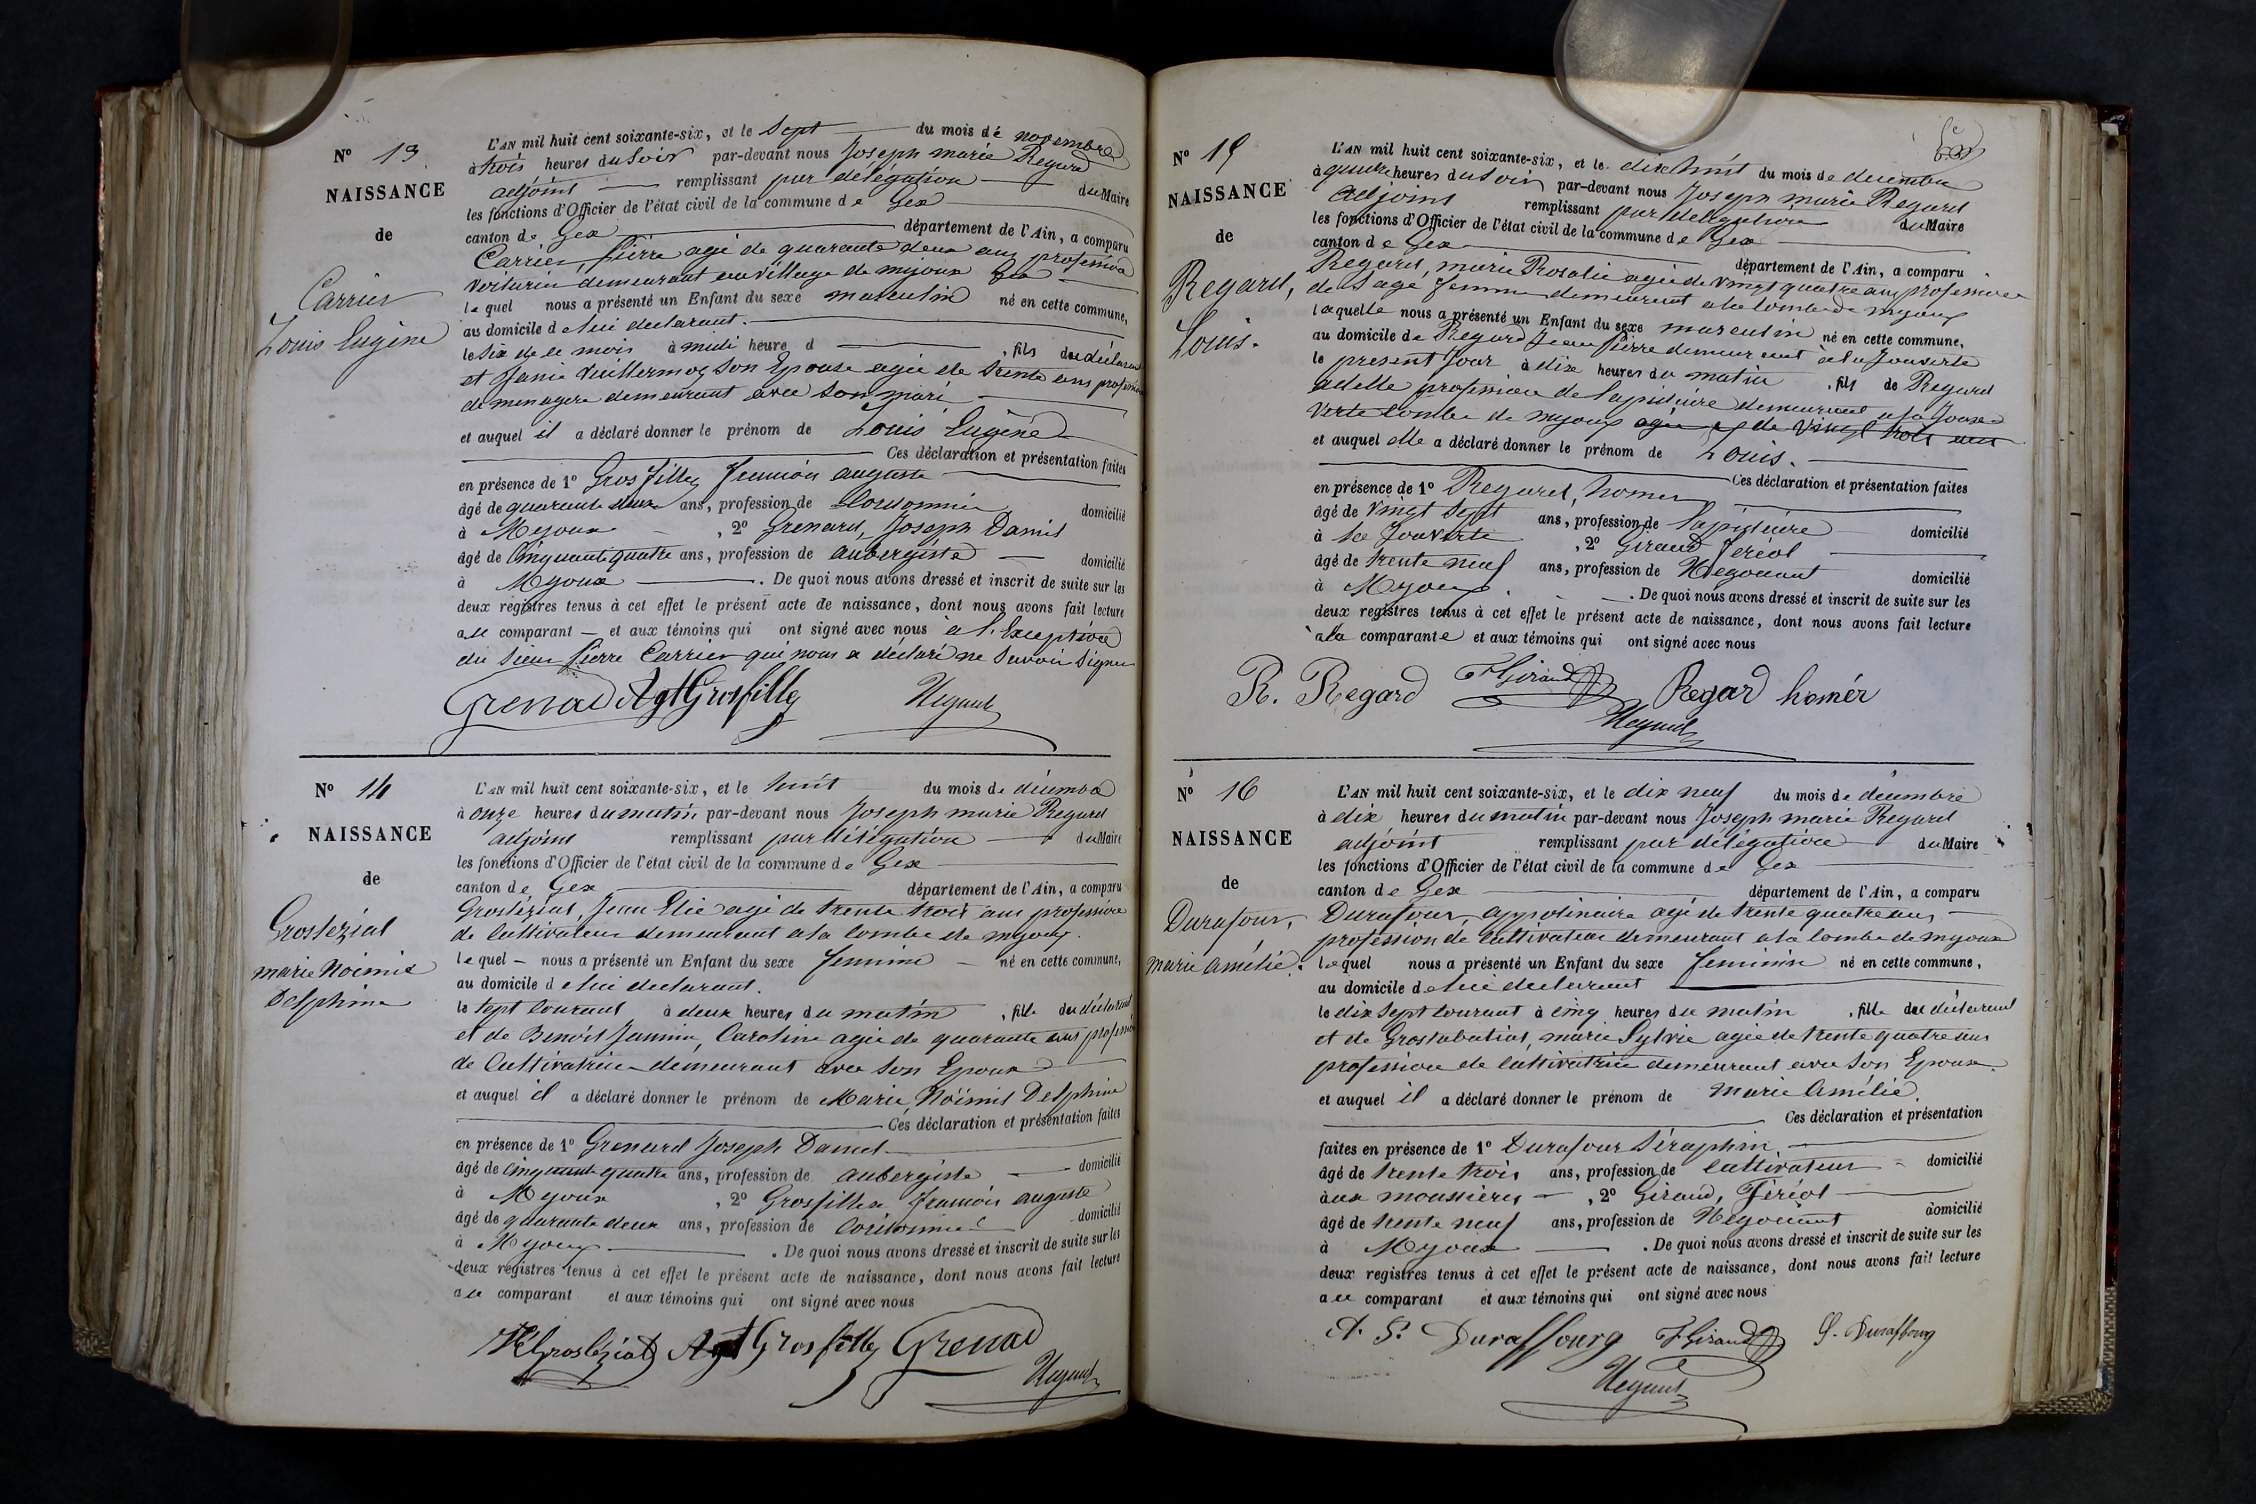 N° 13
NAISSANCE
de
Carrier
Louis Eugène
L'AN mil huit cent soixante-six, et le Sept du mois de novembre
à trois heures du Soir par-devant nous Joseph marie Regard
adjoint remplissant par délégation du Maire
les fonctions d'Officier de l'état civil de la commune de Gex
canton de Gex département de l'Ain, a comparu
Carrier, Pierre agé de quarante deux ans profession
voiturier demeurant au village de mijoux Gex
lequel nous a présenté un Enfant du sexe masculin né en cette commune,
au domicile de lui declarant.
le Six de ce mois à midi heure d , fils du déclarant
et Janie Vuillermoz Son Epouse agée de trente ans profession
de menagere demeurant avec Son mari
et auquel il a déclaré donner le prénom de Louis Eugène
Ces déclaration et présentation faites
en présence de 1° Gros fillez francois auguste
âgé de quarante deux ans, profession de Cordonnier domicilié
à Myoux , 2° Grenard, Joseph Daniel
âgé de Cinquante quatre ans, profession de aubergiste domicilié
à Myoux . De quoi nous avons dressé et inscrit de suite sur les
deux registres tenus à cet effet le présent acte de naissance, dont nous avons fait lecture
au comparant et aux témoins qui ont signé avec nous a l'exeption
du Sieur Pierre Carrier qui nous a déclaré ne Savoir Signer
Grenard Agt Grosfilley Regard
N° 14
NAISSANCE
de
Groslézial
marie Noémis
Delphine
L'AN mil huit cent soixante-six, et le huit du mois de décembre
à onze heures du matin par-devant nous Joseph marie Regard
adjoint remplissant par délégation du Maire
les fonctions d'Officier de l'état civil de la commune de Gex
canton de Gex département de l'Ain, a comparu
Groslézial, Jean Elie agé de trente trois ans profession
de Cultivateur demeurant a la combe de myoux.
lequel nous a présenté un Enfant du sexe feminin né en cette commune,
au domicile de lui declarant.
le Sept Courant à deux heures du matin , fille du déclarant
et de Benoit Jannin, Caroline agée de quarante ans profession
de Cultivatrice demeurant avec Son Epoux
et auquel il a déclaré donner le prénom de Marie, Noémis Delphine
Ces déclaration et présentation faites
en présence de 1° Grenard Joseph Daniel
âgé de Cinquante quatre ans, profession de aubergiste domicilié
à Myoux , 2° Grosfillex, francois auguste
âgé de quarante deux ans, profession de Cordonnier domicilié
à Myoux . De quoi nous avons dressé et inscrit de suite sur les
deux registres tenus à cet effet le présent acte de naissance, dont nous avons fait lecture
au comparant et aux témoins qui ont signé avec nous
Groslézial Agt Grosfilley Grenard
Regard
N° 15
NAISSANCE
de
Regard,
Louis.
L'AN mil huit cent soixante-six, et le dix huit du mois de decembre
à quatre heures du Soir par-devant nous Joseph marie Regard
adjoint remplissant par délégation du Maire
les fonctions d'Officier de l'état civil de la commune de Gex
canton de Gex département de l'Ain, a comparu
Regard, marie Rosalie agée de vingt quatre ans profession
de Sage femme demeurant a la combe de myoux
laquelle nous a présenté un Enfant du sexe masculin né en cette commune,
au domicile de Regard Jean Pierre demeurant à la Jouverte
le present Jour à dix heures du matin , fils de Regard
adelle profession de lapidaire demeurant a la Jouxe
Verte Combe de myoux agée de vingt trois ans
et auquel elle a déclaré donner le prénom de Louis.
Ces déclaration et présentation faites
en présence de 1° Regard, homer
âgé de vingt Sept ans, profession de lapidaire domicilié
à la Jouverte , 2° Giraud feréol
âgé de trente neuf ans, profession de Negociant domicilié
à Myoux . De quoi nous avons dressé et inscrit de suite sur les
deux registres tenus à cet effet le présent acte de naissance, dont nous avons fait lecture
à la comparante et aux témoins qui ont signé avec nous
R. Regard F Giraud Regard homér
Regard
N° 16
NAISSANCE
de
Durafour,
marie amélie.
L'AN mil huit cent soixante-six, et le dix neuf du mois de décembre
à dix heures du matin par-devant nous Joseph marie Regard
adjoint remplissant par délégation du Maire
les fonctions d'Officier de l'état civil de la commune de Gex
canton de Gex département de l'Ain, a comparu
Durafour, appolinaire agé de trente quatre ans,
profession de Cultivateur demeurant a la combe de myoux
lequel nous a présenté un Enfant du sexe feminin né en cette commune,
au domicile de lui declarant
le dix Sept Courant à cinq heures du matin , fille du déclarant
et de Grostabutiat, marie Sylvie agée de trente quatre ans
profession de Cultivatrice demeurant avec Son Epoux.
et auquel il a déclaré donner le prénom de Marie Amélie.
Ces déclaration et présentation
faites en présence de 1° Durafour Séraphin
âgé de trente trois ans, profession de Cultivateur domicilié
à aux moussieres , 2° Giraud, féréol
âgé de trente neuf ans, profession de Negociant domicilié
à Myoux . De quoi nous avons dressé et inscrit de suite sur les
deux registres tenus à cet effet le présent acte de naissance, dont nous avons fait lecture
au comparant et aux témoins qui ont signé avec nous
A. S. Duraffourg F Giraud S. Duraffourg
Regard